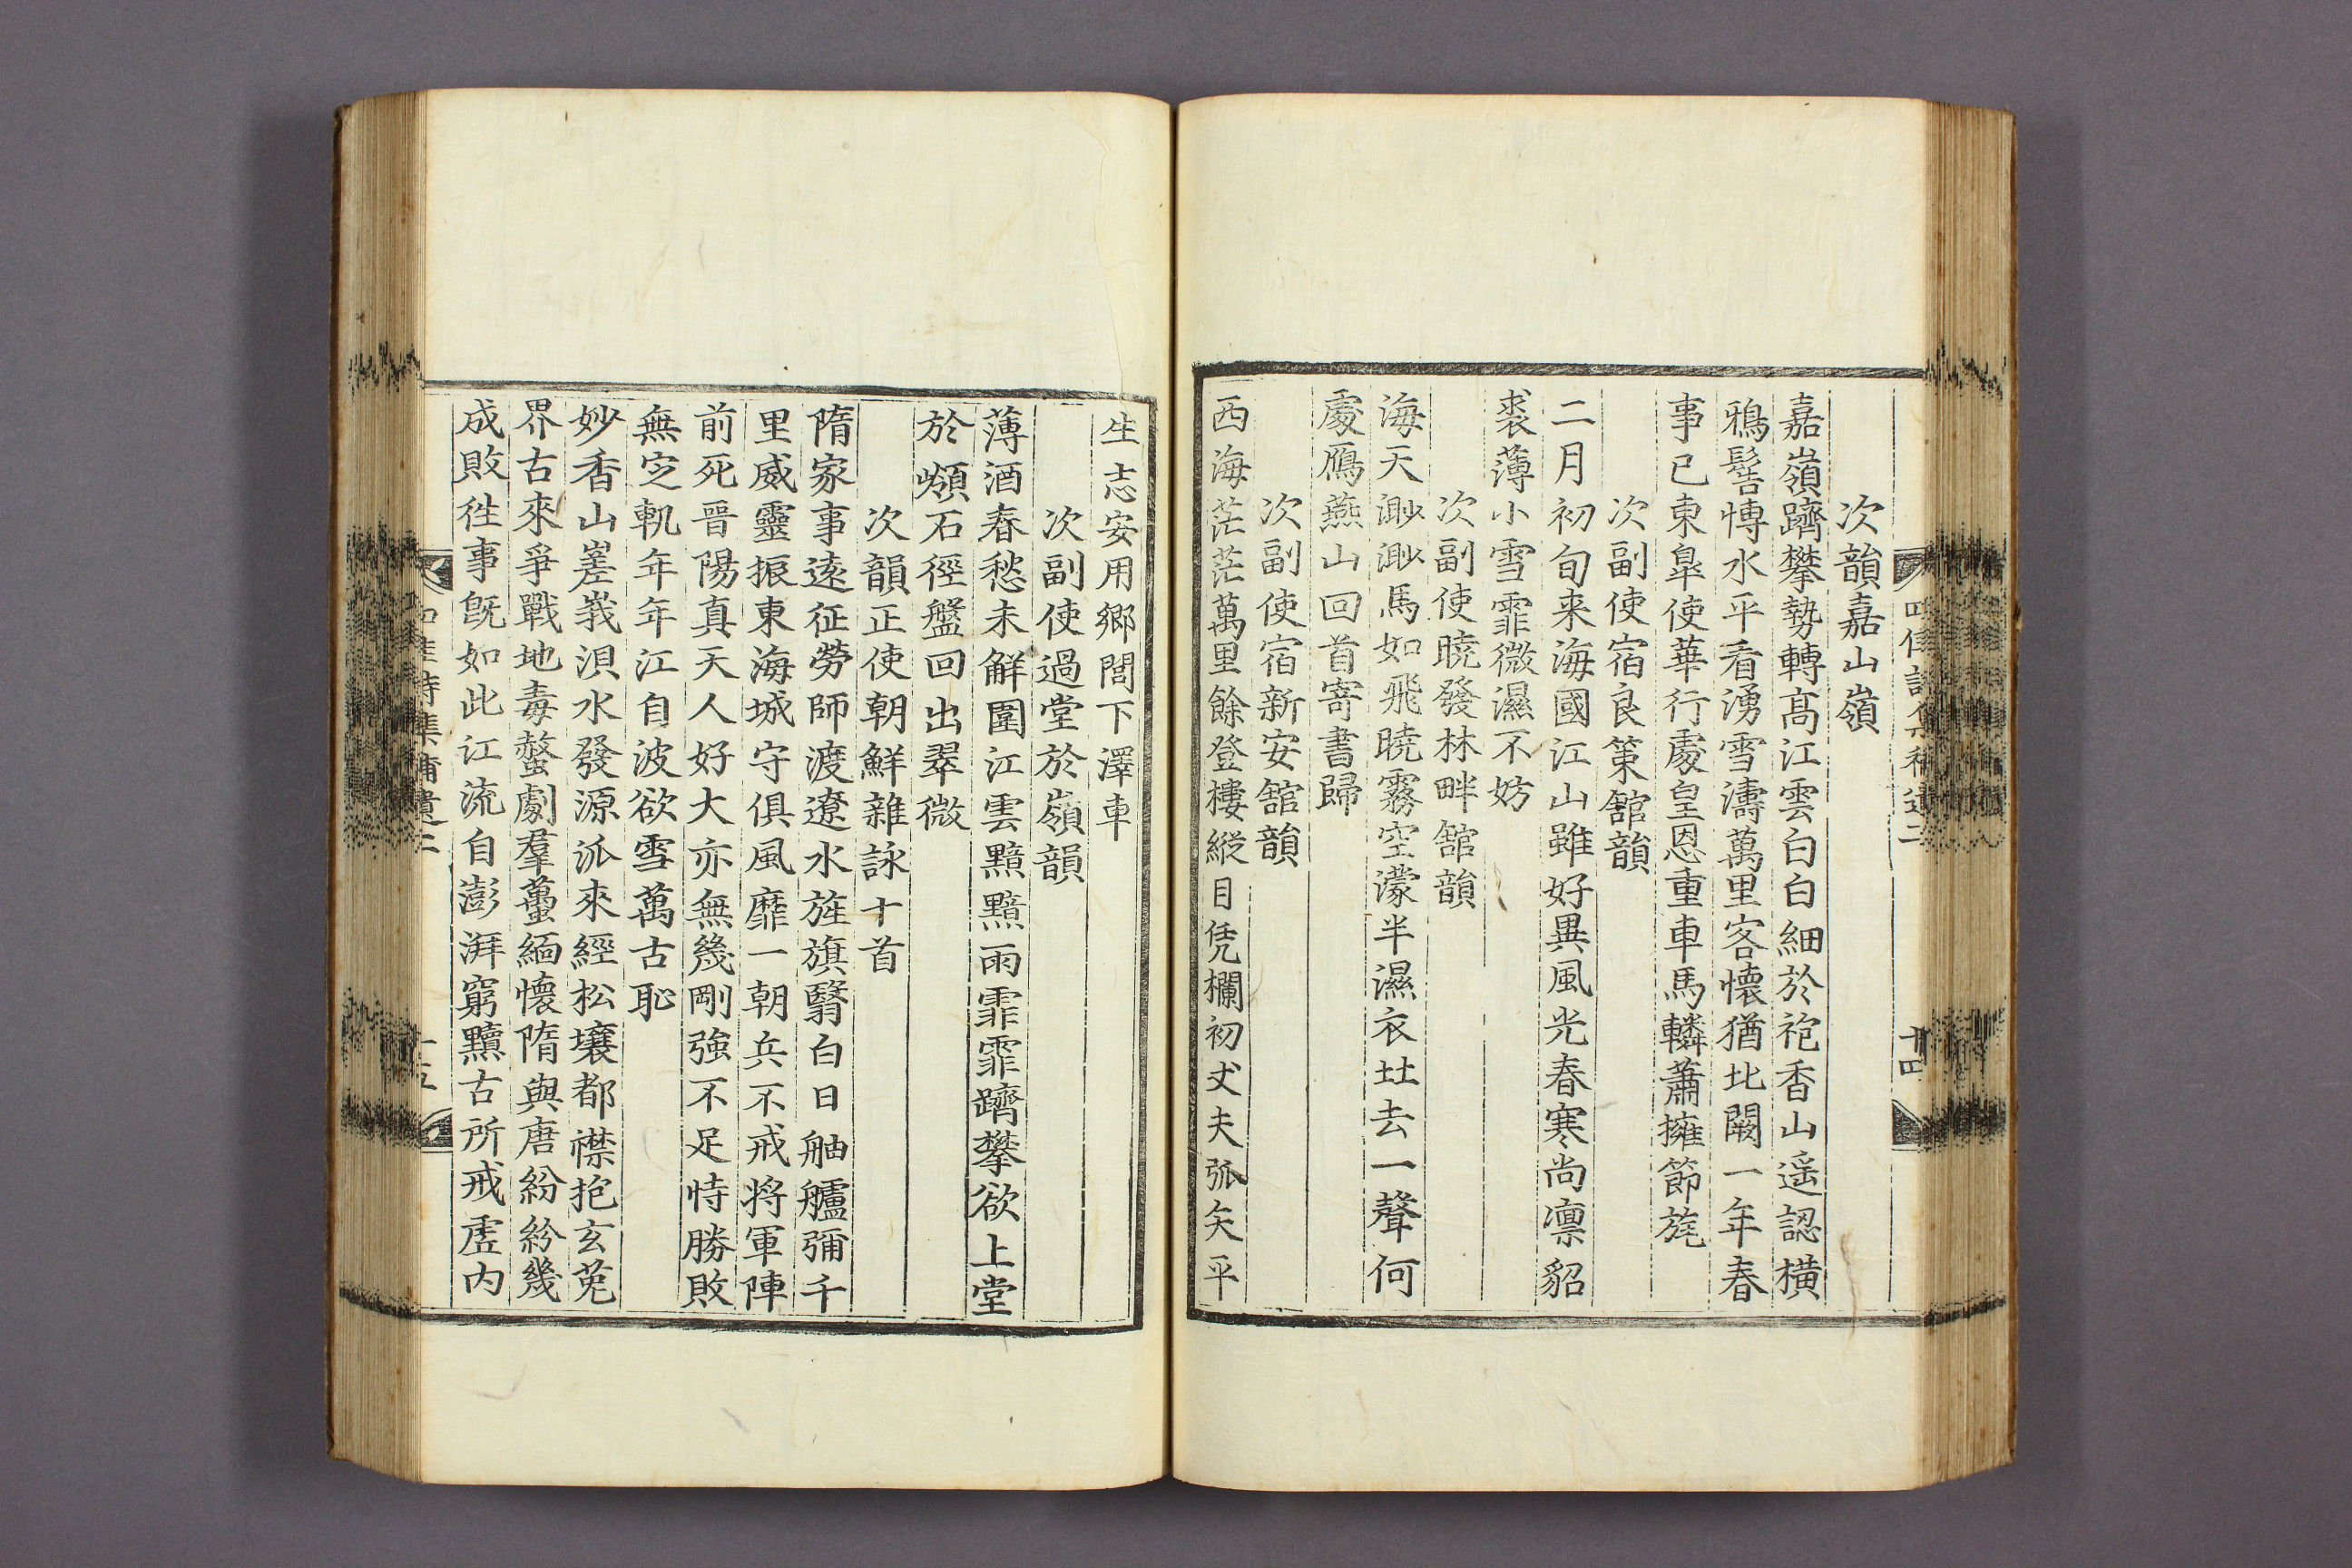 次韻嘉山嶺
嘉嶺躋攀勢轉高江雲白白細於袍香山遥認橫
鴉髻愽水平看湧雪濤萬里客懷猶北闕一年春
事已東皐使華行處皇恩重車馬轔蕭擁節旄
次副使宿良策舘韻
二月初旬来海國江山雖好異風光春寒尚凛貂
裘薄小雪霏微濕不妨
次副使曉發林畔舘韻
海天渺渺馬如飛曉霧空濛半濕衣㘴去一聲何
處鴈燕山回首寄書歸
次副使宿新安舘韻
西海茫茫萬里餘登樓縱目凭欄初丈夫弧矢平
十四
生志安用鄉閭下澤車
次副使過堂於嶺韻
薄酒春愁未觧圍江雲黯黯雨霏霏躋攀欲上堂
於嶺石徑盤回出翠微
次韻正使朝鮮雜詠十首
隋家事逺征勞師渡遼水旌旗翳白日舳艫彌千
里威靈振東海城守俱風靡一朝兵不戒將軍陣
前死晋陽真天人好大亦無幾剛強不足恃勝敗
無㝎軌年年江自波欲雪萬古恥
妙香山嵳峩浿水發源𣲖來經松壤都襟抱玄菟
界古來爭戰地毒螫劇羣蠆緬懷隋與唐紛紛幾
成敗徃事旣如此江流自澎湃窮黷古所戒虛内
十五